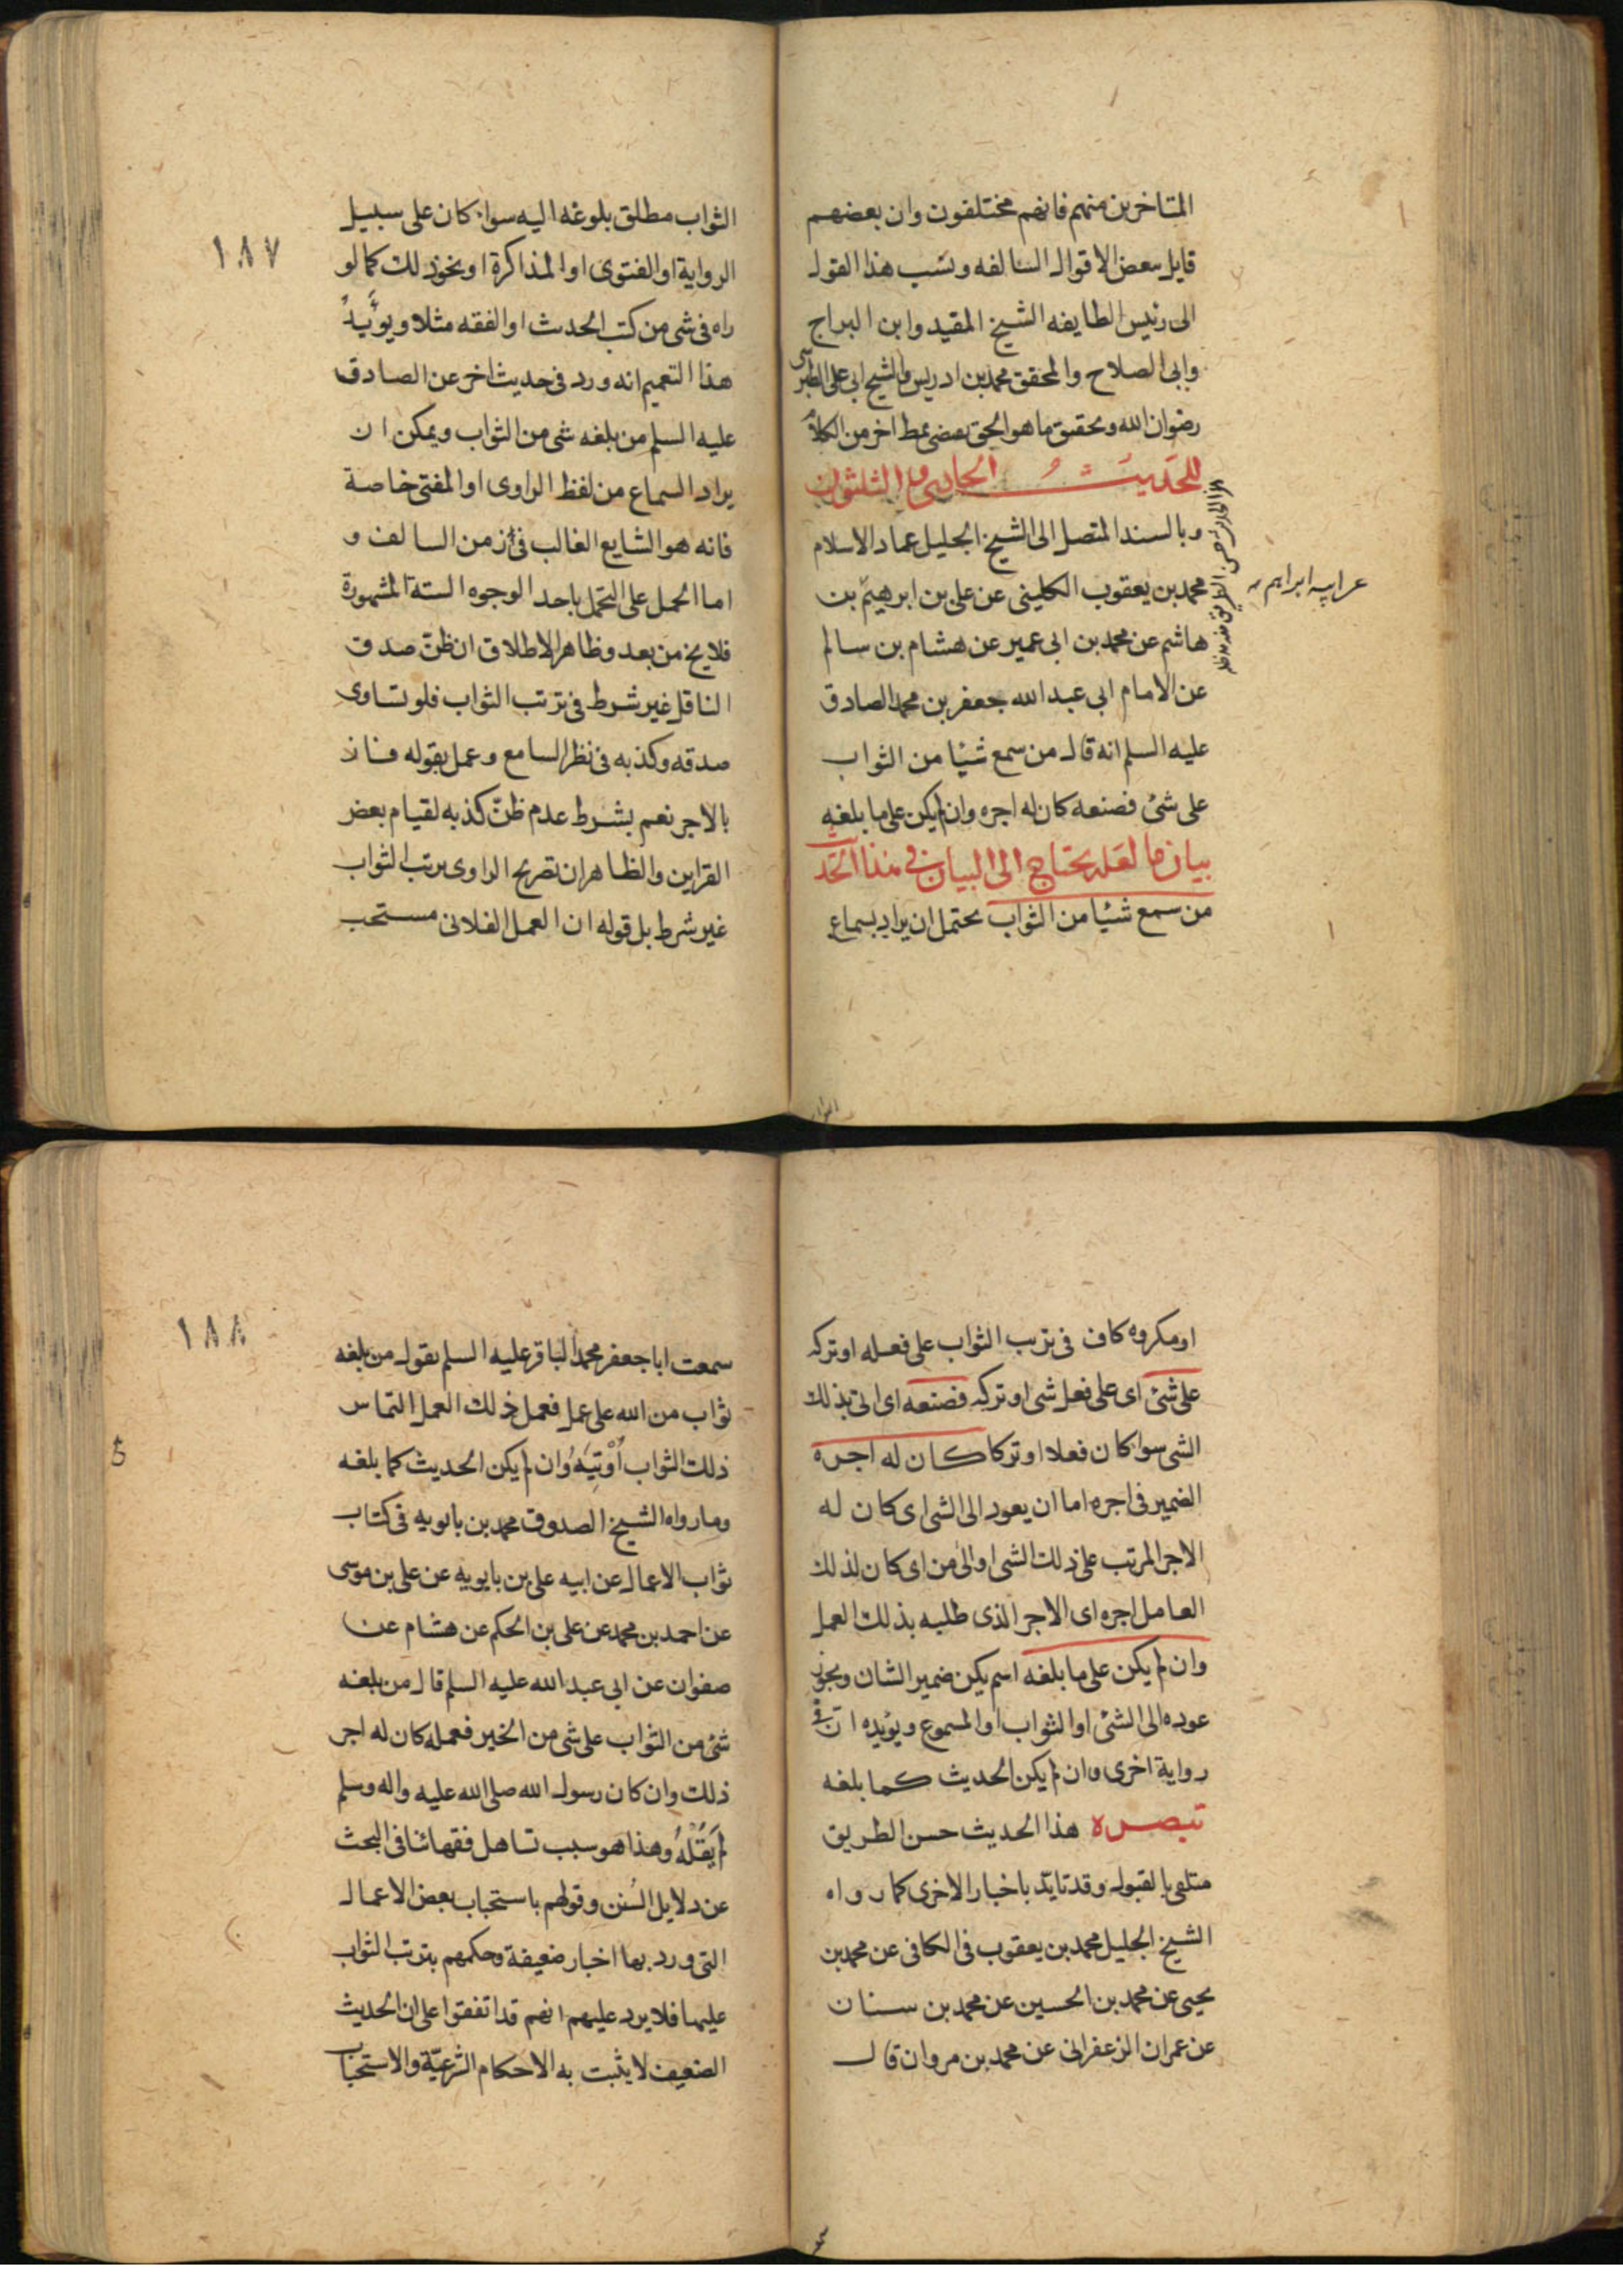 المتاخرين منهم فانهم مختلفون وان بعضهم
قايل ببعض الاقوال السالفه ونسب هذا القول
الى رئيس الطايفه الشيخ المفيد وابن البراج
وابى الصلاح والمحقق محمد بن ادريس والشيخ ابى على الطبرسى
رضوان الله وتحقيق ما هو الحق بعضى نمط اخر من الكلام
الحديث الحادى والثلثون
وبالسند المتصل الى الشيخ الجليل عماد الاسلام
محمد بن يعقوب الكلينى عن على بن ابرهيم بن
هاشم عن محمد بن ابى عمير عن هشام بن سالم
عن الامام ابى عبد الله جعفر بن محمد الصادق
عليه السلم انه قال من سمع شيئا من الثواب
على شئ فصنعه كان له اجره وان لم يكن على ما بلغه
بيان ما لعله يحتاج الى البيان فى هذا الحد
من سمع شيئا من الثواب يحتمل ان يراد بسماع
عن ابيه ابراهيم
الثواب مطلق بلوغه اليه سواء كان على سبيل
الرواية او الفتوى او المذاكرة او نحو ذلك كما لو
راه فى شى من كتب الحدث او الفقه مثلا ويؤيد
هذا التعميم انه ورد فى حديث اخر عن الصادق
عليه السلم من بلغه شى من الثواب ويمكن ان
يراد السماع من لفظ الراوى او المفتى خاصة
فانه هو الشايع الغالب فى الزمن السالف و
اما الحمل على التحمل باحد الوجوه الستة المشهورة
فلا يخ من بعد وظاهر الاطلاق ان ظن صدق
الناقل غير شرط فى ترتب الثواب فلو تساوى
صدقه وكذبه فى نظر السامع وعمل بقوله فاز
بالاجر نعم بشرط عدم ظن كذبه لقيام بعض
القراين والظاهر ان تصريح الراوى بترتب الثواب
غير شرط بل قوله ان العمل الفلانى مستحب
١٨٧
او مكروه كاف فى ترتب الثواب على فعله او تركه
على شئ اى على فعل شى او تركه فصنعه اى اتى بذلك
الشى سواء كان فعلا او تركا كان له اجره
الضمير فى اجره اما ان يعود الى الشى اى كان له
الاجر المرتب على ذلك الشى او الى من اى كان لذلك
العامل اجره اى الاجر الذى طلبه بذلك العمل
وان لم يكن على ما بلغه اسم يكن ضمير الشان ويجوز
عوده الى الشئ او الثواب او المسموع ويؤيده ان فى
رواية اخرى وان لم يكن الحديث كما بلغه
تبصره هذا الحديث حسن الطريق
متلقى بالقبول وقد تايد باخبار الاخرى كما رواه
الشيخ الجليل محمد بن يعقوب فى الكافى عن محمد بن
يحيى عن محمد بن الحسين عن محمد بن سنان
عن عمران الزعفرانى عن محمد بن مروان قال
سمعت ابا جعفر محمد الباقر عليه السلم يقول من بلغه
ثواب من الله على عمل فعمل ذلك العمل التماس
ذلك الثواب أُوْتِيَهُ وان لم يكن الحديث كما بلغه
وما رواه الشيخ الصدوق محمد بن بابويه فى كتاب
ثواب الاعمال عن ابيه على بن بابويه عن على بن موسى
عن احمد بن محمد عن على بن الحكم عن هشام عن
صفوان عن ابى عبد الله عليه السلم قال من بلغه
شئ من الثواب على شى من الخير فعمله كان له اجر
ذلك وان كان رسول الله صلى الله عليه واله وسلم
لم يَقُلْهُ وهذا هو سبب تساهل فقهائنا فى البحث
عن دلايل السُنن وقولهم باستحباب بعض الاعمال
التى ورد بها اخبار ضعيفة وحكمهم بترتب الثواب
عليها فلا يرد عليهم انهم قد اتفقوا على ان الحديث
الضعيف لا يثبت به الاحكام الشرعيّة والاستحباب
١٨٨